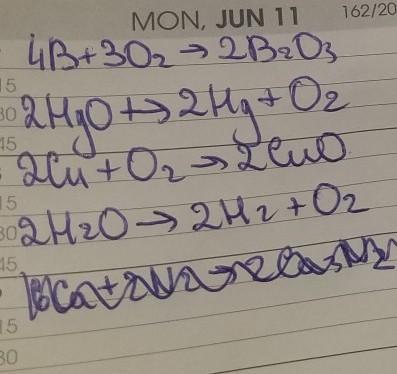 MON, JUN 11 162/20
4B+3O₂→2B₂O₃
15
30 2HgO→2Hg+O₂
45
2Cu+O₂→2CuO
15
30 2H₂O→2H₂+O₂
45
15
30